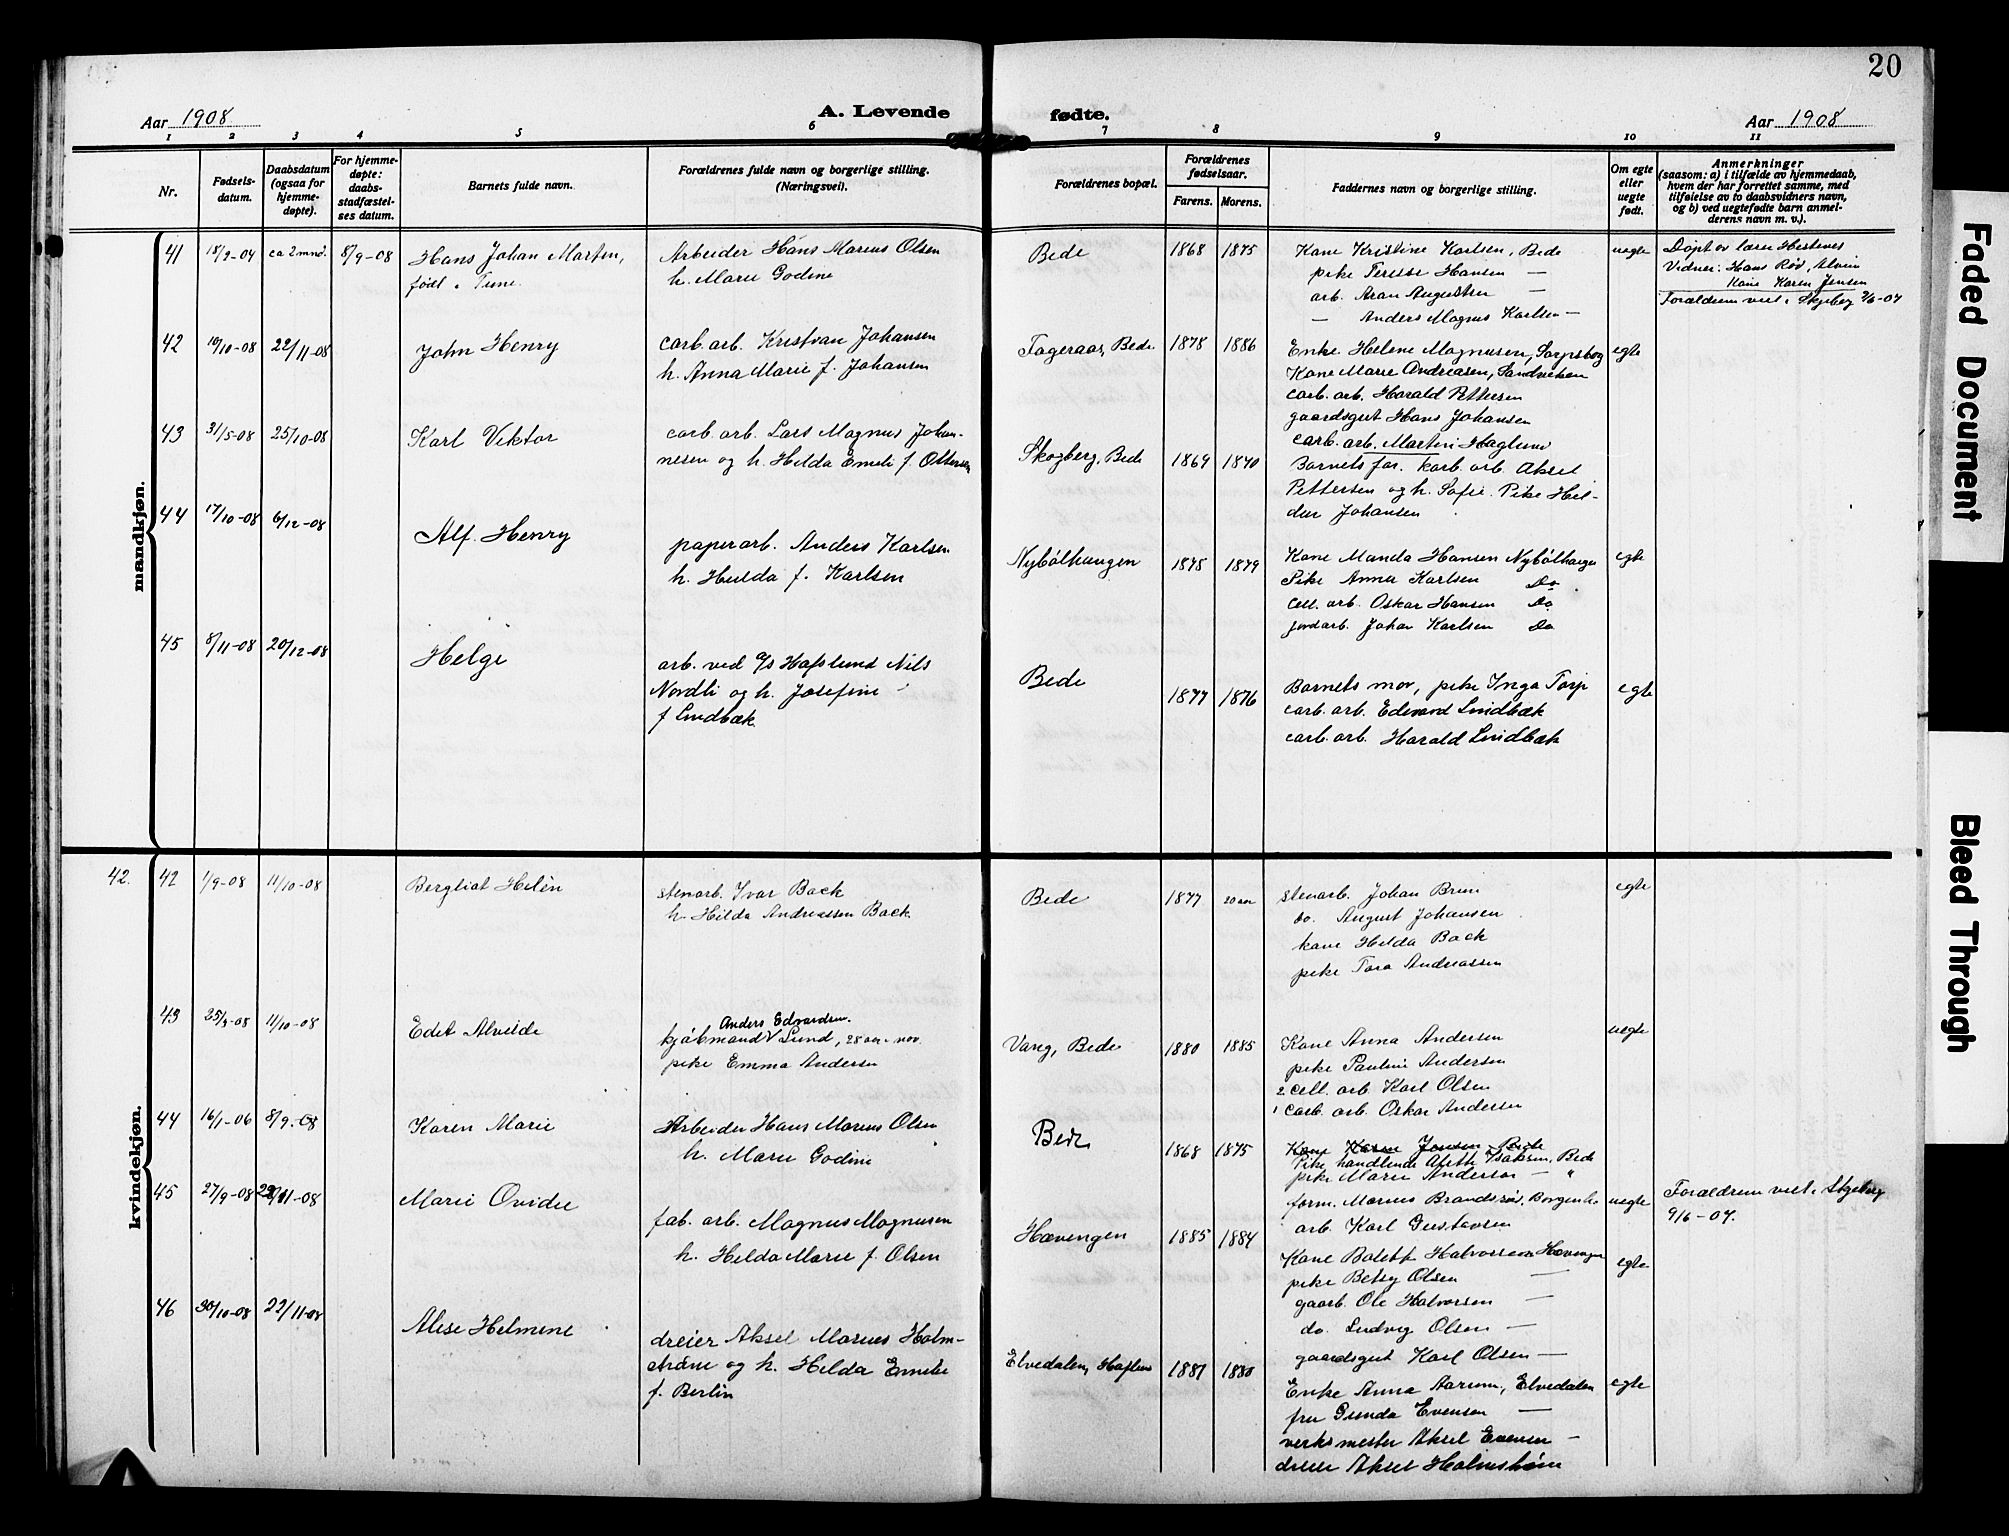 20
Aar 1908
A. Levende
fødte.
Aar 1908
1 2 3 4 5 6 7 8 9 10 11
Nr.
Fødsels-
datum.
Daabsdatum
(ogsaa for
hjemme-
døpte).
For hjemme-
døpte:
daabs-
stadfæstel-
ses datum.
Barnets fulde navn.
Forældrenes fulde navn og borgerlige stilling.
(Næringsvei).
Forældrenes bopæl.
Forældrenes
fødselsaar.
Farens. Morens.
Faddernes navn og borgerlige stilling.
Om egte
eller
uegte
født.
Anmerkninger
(saasom: a) i tilfælde av hjemmedaab,
hvem der har forrettet samme, med
tilføielse av to daabsvidners navn,
og b) ved uegtefødte barn anmel-
derens navn m. v.).
mandkjøn.
41
18/2-04
ca 2 mnd.
8/9-08
Hans Johan Marten,
født i Tune.
Arbeider Hans Marius Olsen
h. Marie Godine
Bede
1868 1875
Kone Kristine Karlsen, Bede
pike Terese Hansen —
arb. Aran Augustsen —
— Anders Magnus Karlsen —
uegte
Døpt av lærer Hestenes
Vidner: Hans Rød, Alvim
Kone Karen Jensen
Forældrene viet i Skjeberg 9/6-07
42
19/10-08
22/11-08
John Henry
carb. arb. Kristian Johansen
h. Anna Marie f. Johansen
Tageraas, Bede
1878 1886
Enke Helene Magnusen, Sarpsborg
Kone Marie Andreasen, Sandviken
carb. arb. Harald Pettersen
gaardsgut Hans Johansen
carb. arb. Martin Haglund
egte
43
31/5-08
25/10-08
Karl Viktor
carb. arb. Lars Magnus Johan-
nesen og h. Hilda Emeli f. Ottersen
Skogberg, Bede
1869 1870
Barnets far. karb. arb. Aksel
Pettersen og h. Sofie. Pike Hil-
dur Johansen
44
17/10-08
6/12-08
Alf Henry
papirarb. Anders Karlsen
h. Hulda f. Karlsen
Nybølhaugen
1878 1879
Kone Manda Hansen Nybølhaugen
Pike Anna Karlsen Do
Cell. arb. Oskar Hansen Do
jordarb. Johan Karlsen Do
egte
45
8/11-08
20/12-08
Helge
arb. ved a/s Hafslund Nils
Nordli og h. Josefine
f Lindbæk
Bede
1877 1876
Barnets mor, pike Inga Torp
carb. arb. Edvard Lindbæk
carb. arb. Harald Lindbæk
egte
kvindekjøn.
42.
42
1/9-08
11/10-08
Bergliot Helén
stenarb. Ivar Back
h. Hilda Andreassen Back
Bede
1877 20 aar
stenarb. Johan Brun
do. August Johansen
kone Hilda Back
pike Tora Andreassen
egte
43
25/7-08
11/10-08
Edit Alvilde
Anders Edvardsen
kjøbmand V Lund, 28 aar i nov.
pike Emma Andersen
Vang, Bede
1880 1885
Kone Anna Andersen
pike Pauline Andersen
2 cell. arb. Karl Olsen
1 carb. arb. Oskar Andersen
uegte
44
16/1-06
8/9-08
Karen Marie
Arbeider Hans Marius Olsen
h. Marie Godine
Bede
1868 1875
Kone Karen Jensen, Bede
Pike, handlende Agethe Isaksen, Bede
pike Marie Anderson — "
form. Marius Brandsrød, Borgenh.
arb. Karl Gustavsen
uegte
Forældrene viet i Skjeberg
9/6-07.
45
27/9-08
22/11-08
Marie Ovidie
fab. arb. Magnus Magnusen
h. Hilda Marie f. Olsen
Hævengen
1885 1884
Kone Bolette Halvorsen Hævengen
pike Betsy Olsen —
gaarb. Ole Halvorsen —
do. Ludvig Olsen —
gaardsgut Karl Olsen —
egte
46
30/10-08
22/11-08
Alise Helmine
dreier Aksel Marius Holm-
strøm og h. Hilda Emelie
f. Berlin
Elvedalen, Hafslund
1881 1880
Enke Anna Aarum, Elvedalen
fru Gunda Evensen —
verksmester Aksel Evensen —
dreier Aksel Holmstrøm
egte
Faded Document
Bleed Through